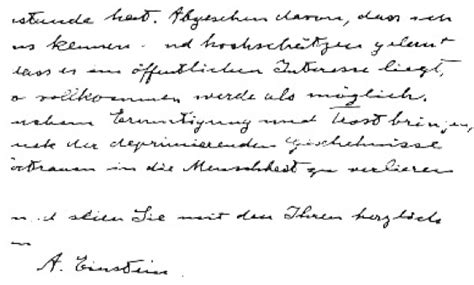 stunde hat. Abgesehen davon, dass ich
kennen und hochschätzen gelernt
dass es im öffentlichen Interesse liegt,
o vollkommen werde als möglich.
Ermutigung und Trost bringen,
der deprimierenden Geschehnisse
in die Menschheit zu verlieren
und seien Sie mit den Ihren herzlich
A. Einstein.